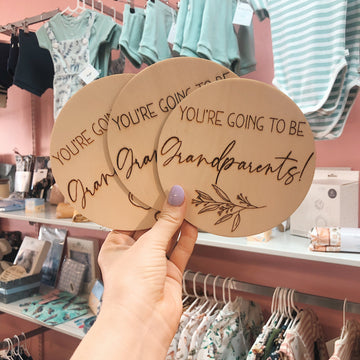 YOU'RE GO
Gran
YOU'RE GOING
Gra
YOU'RE GOING TO BE
Grandparents!